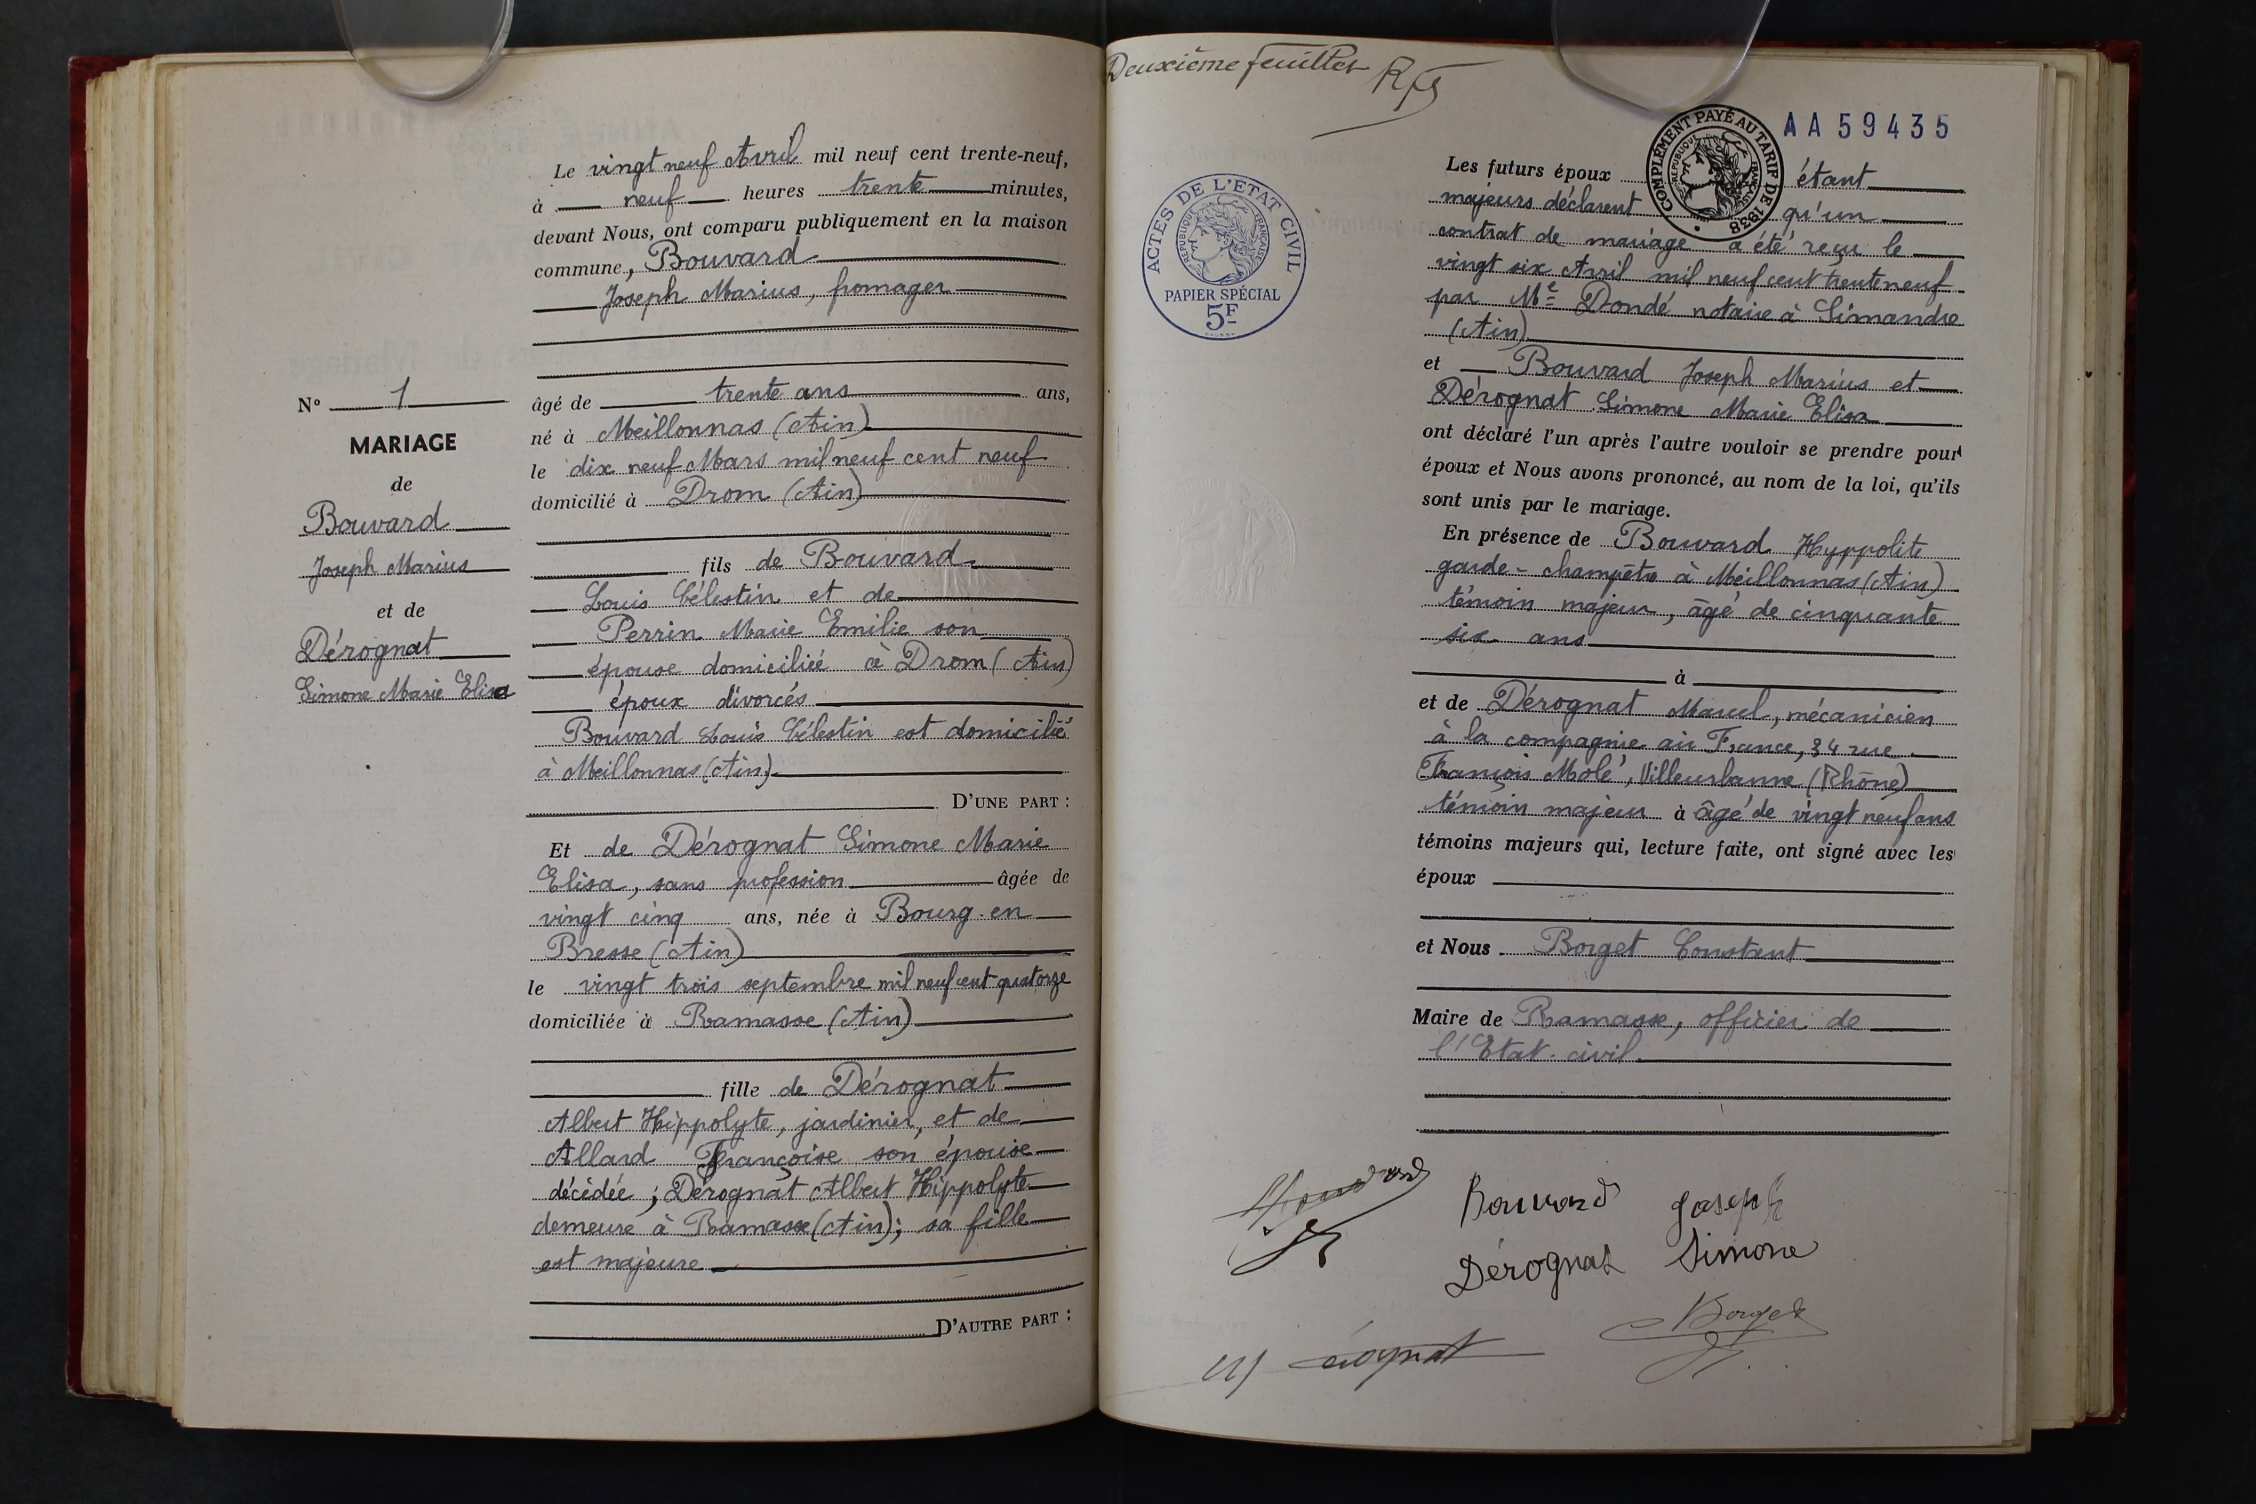 Le vingt neuf Avril mil neuf cent trente-neuf,
à neuf heures trente minutes,
devant Nous, ont comparu publiquement en la maison
commune, Bouvard
Joseph Marius, fromager
N° 1
MARIAGE
de
Bouvard
Joseph Marius
et de
Dérognat
Simone Marie Elisa
âgé de trente ans ans,
né à Meillonnas (Ain)
le dix neuf Mars mil neuf cent neuf
domicilié à Drom (Ain)
fils de Bouvard
Louis Célestin et de
Perrin Marie Emilie son
épouse domiciliée à Drom (Ain)
époux divorcés
Bouvard Louis Célestin est domicilié
à Meillonnas (Ain)
D'UNE PART :
Et de Dérognat Simone Marie
Elisa, sans profession âgée de
vingt cinq ans, née à Bourg-en
Bresse (Ain)
le vingt trois septembre mil neuf cent quatorze
domiciliée à Ramasse (Ain)
fille de Dérognat
Albert Hippolyte, jardinier, et de
Allard Françoise son épouse
décédée ; Dérognat Albert Hippolyte
demeure à Ramasse (Ain) ; sa fille
est majeure
D'AUTRE PART :
Deuxième feuillet
AA 59435
COMPLÉMENT PAYÉ AU TARIF DE 1938
RÉPUBLIQUE FRANÇAISE
ACTES DE L'ETAT CIVIL
RÉPUBLIQUE FRANÇAISE
PAPIER SPÉCIAL
5F
Les futurs époux étant
majeurs déclarent qu'un
contrat de mariage a été reçu le
vingt six Avril mil neuf cent trente neuf
par Me Dondé notaire à Simandre
(Ain)
et Bouvard Joseph Marius et
Dérognat Simone Marie Elisa
ont déclaré l'un après l'autre vouloir se prendre pour
époux et Nous avons prononcé, au nom de la loi, qu'ils
sont unis par le mariage.
En présence de Bouvard Hyppolite
garde-champêtre à Meillonnas (Ain)
témoin majeur, âgé de cinquante
six ans
à
et de Dérognat Marcel, mécanicien
à la compagnie air France, 34 rue
François Molé, Villeurbanne (Rhône)
témoin majeur à âgé de vingt neuf ans
témoins majeurs qui, lecture faite, ont signé avec les
époux
et Nous Borget Constant
Maire de Ramasse, officier de
l'Etat-civil
Bouvard
Bouvard Joseph
Dérognat Simone
Borget
Dérognat